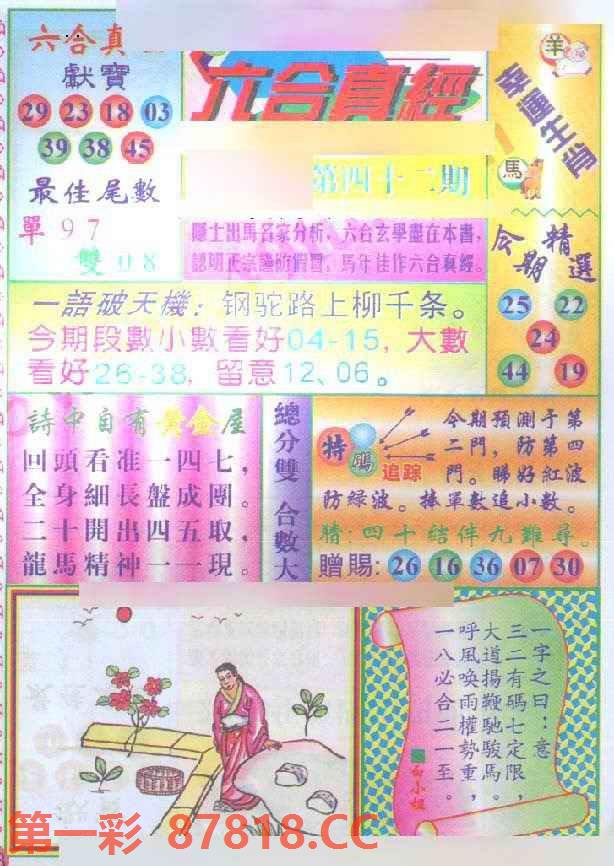 六合真
獻寶
29 23 18 03
39 38 45
最佳尾數
單 9 7
雙 0 8
六合真經
第四十二期
隱士出馬名家分析，六合玄學盡在本書，
認明正宗謹防假冒，馬年佳作六合真經。
羊
幸運生肖
馬
今期精選
25 22
24
44 19
一語破天機：钢驼路上柳千条。
今期段數小數看好04-15，大數
看好26-38，留意12、06。
詩中自有黃金屋
回頭看准一四七，
全身細長盤成團。
二十開出四五取，
龍馬精神一一現。
總分雙 合數大
特碼追踪
今期預測予第
二門，防第四
門。睇好紅波
防綠波。捧單數追小數。
猜：四十结伴九難尋。
贈賜：26 16 36 07 30
一字之曰：意
三二有碼七定限，
大道揚鞭馳駿馬。
呼風喚雨權勢重，
一八必合二一至。
白小姐
第一彩 87818.CC